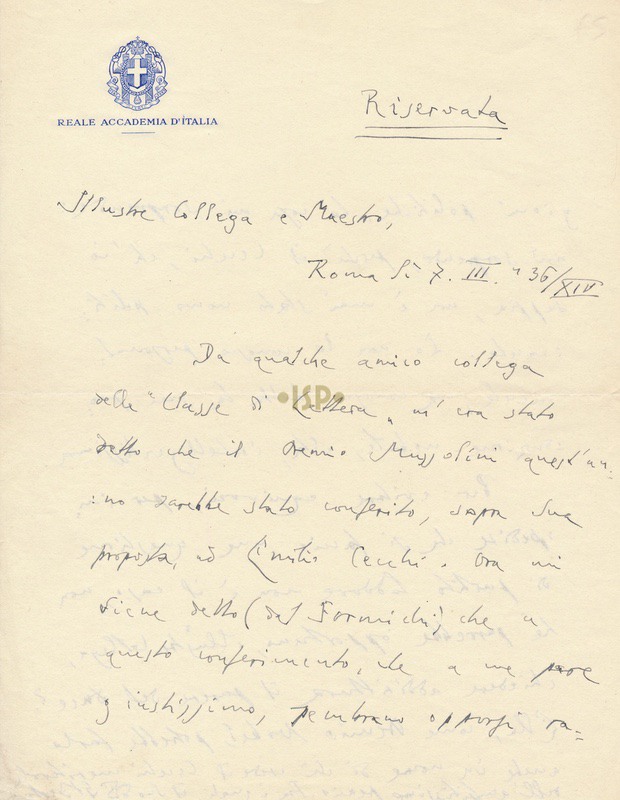 REALE ACCADEMIA D'ITALIA
Riservata
Illustre Collega e Maestro,
Roma lì 7. III. '36/XIV
Da qualche amico collega
della "Classe di Lettere" m'era stato
detto che il Premio Mussolini quest'an-
no sarebbe stato conferito, sopra sua
proposta, ad Emilio Cecchi. Ora mi
viene detto (dal Formichi) che a
questo conferimento, che a me pare
giustissimo, sembrano opporsi ra=
ISP